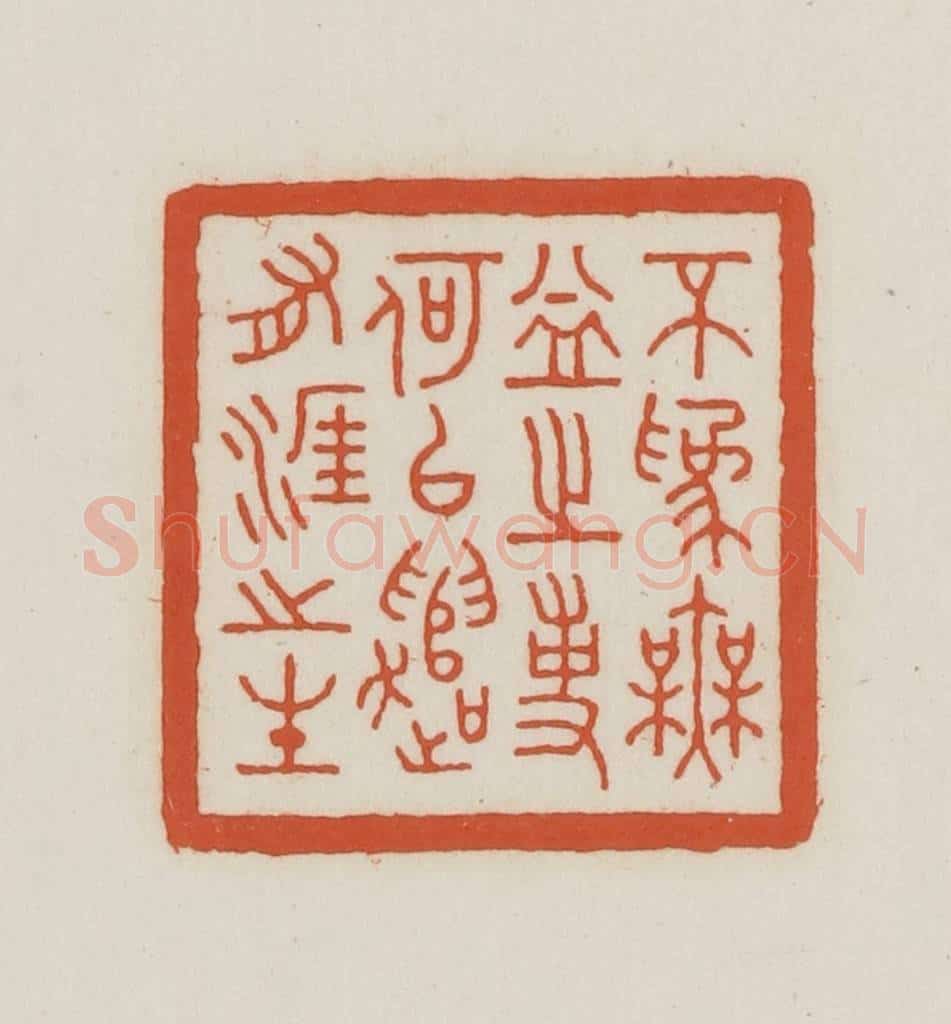 不為無
益之事
何以遣
有涯之生
Shufawang.CN